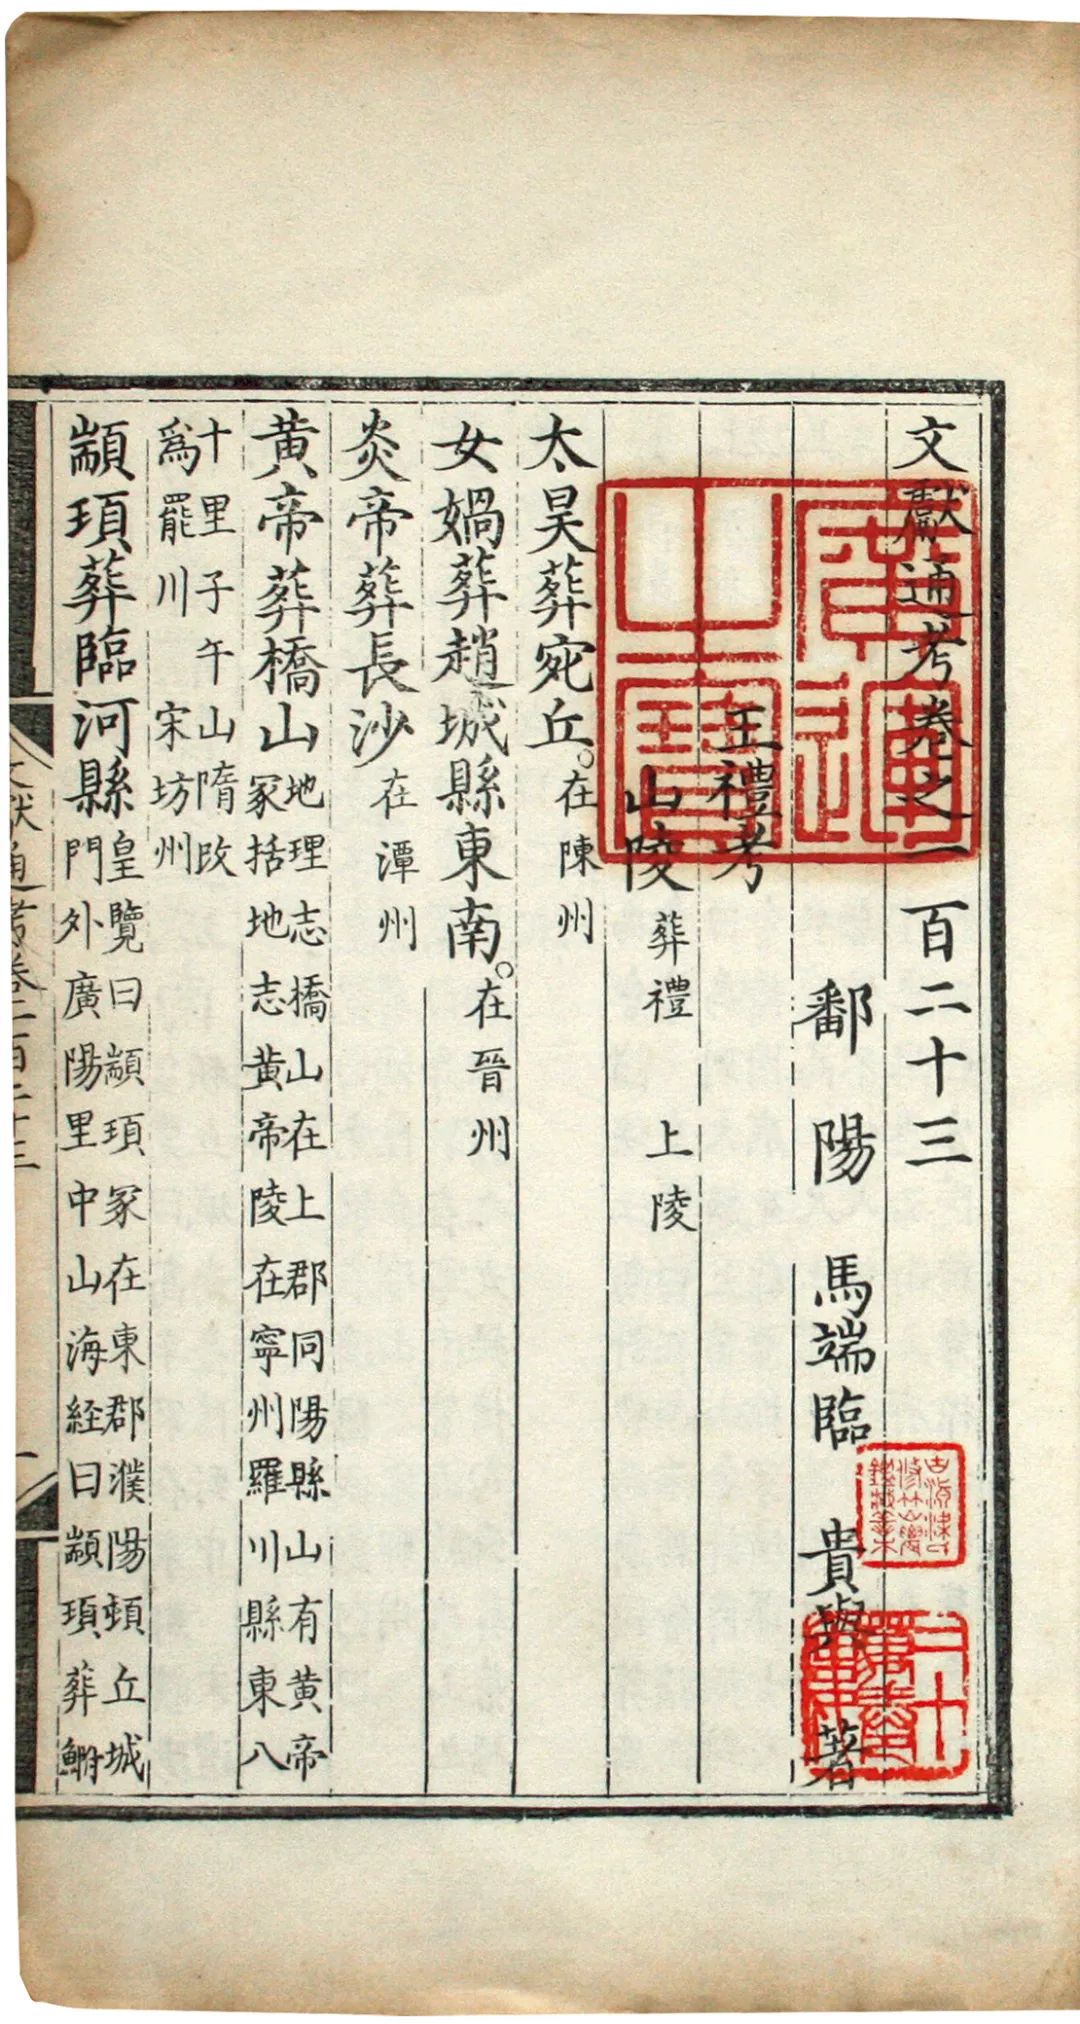 文獻通考卷之一百二十三
鄱陽馬端臨貴與著
王禮考
山陵 葬禮 上陵
太昊葬宛丘。在陳州
女媧葬趙城縣東南。在晉州
炎帝葬長沙 在潭州
黃帝葬橋山 地理志橋山在上郡同陽縣山有黃帝
冢括地志黃帝陵在寧州羅川縣東八
十里子午山隋改
為罷川 宋坊州
顓頊葬臨河縣 皇覽曰顓頊冢在東郡濮陽頓丘城
門外廣陽里中山海経曰顓頊葬鮒
文獻通考卷一百二十三
一
乾隆之寶